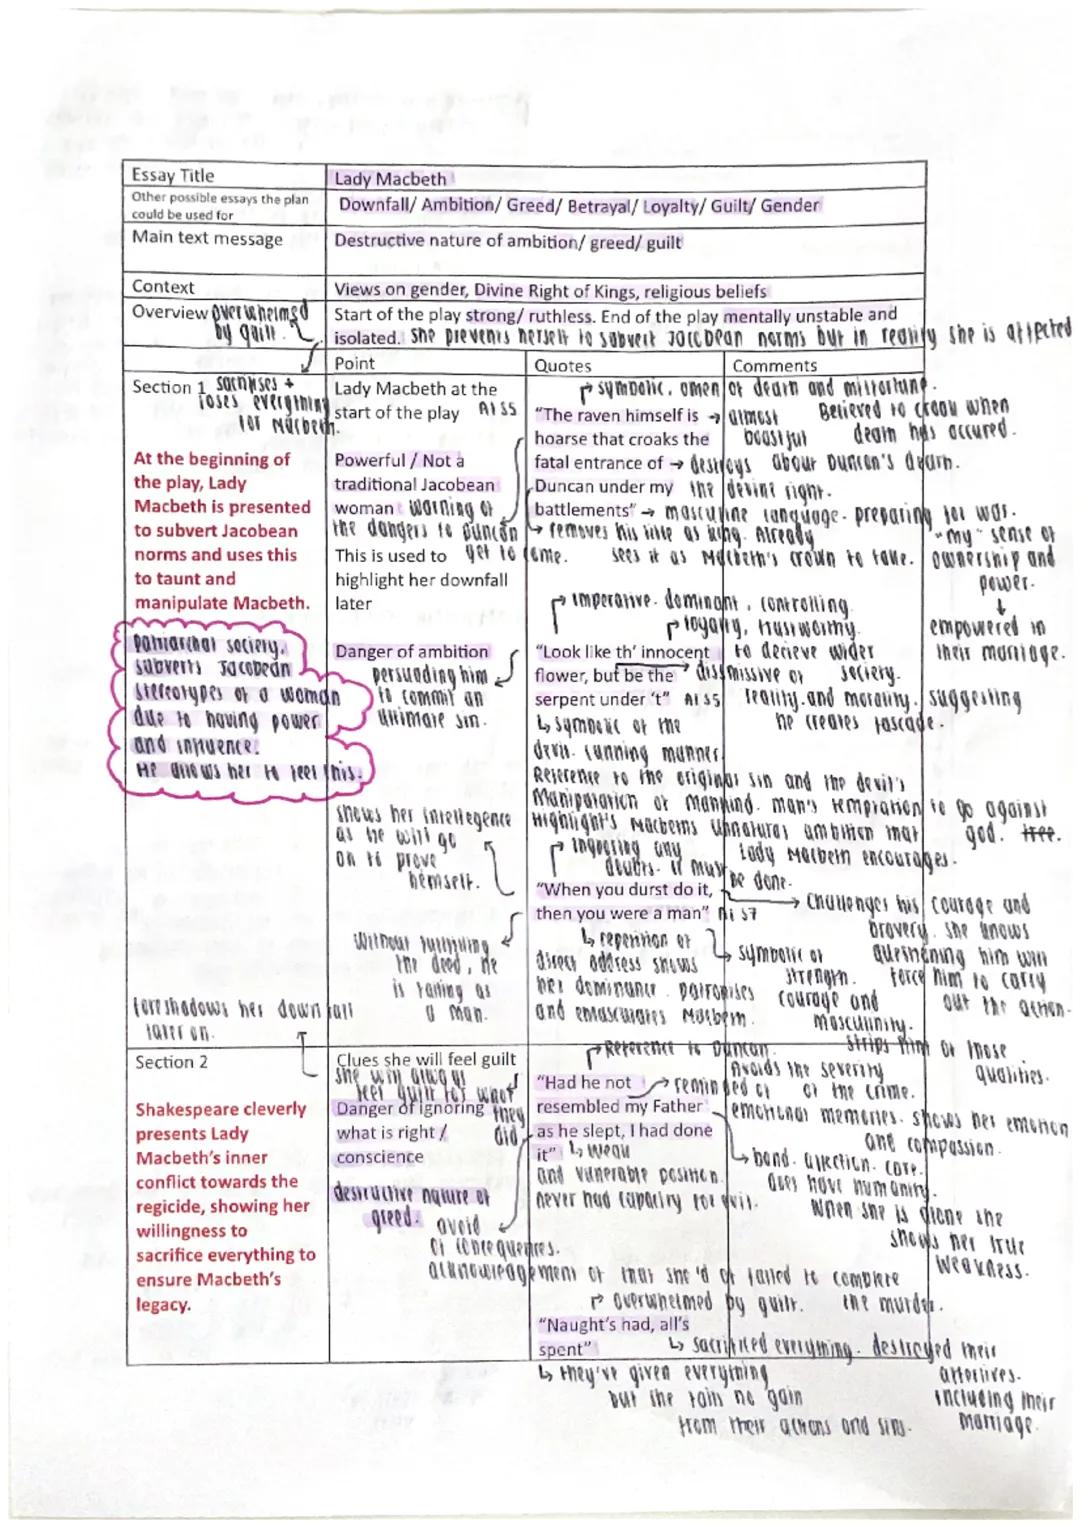 Essay Title
Lady Macbeth
Other possible essays the plan
could be used for
Downfall/ Ambition/ Greed/ Betrayal/ Loyalty/ Guilt/ Gender
Main text message
Destructive nature of ambition/ greed/ guilt
Context
Views on gender, Divine Right of Kings, religious beliefs
Overview overwhelmed
by guilt.
Start of the play strong/ ruthless. End of the play mentally unstable and
isolated. She prevents herself to subvert Jacobean norms but in reality she is affected
Point
Quotes
Comments
Section 1 sacrifises +
loses everything
for Macbeth.
At the beginning of
the play, Lady
Macbeth is presented
to subvert Jacobean
norms and uses this
to taunt and
manipulate Macbeth.
Patriarchal society.
subverts Jacobean
stereotypes of a woman
due to having power
and influence.
He allows her to feel this.
foreshadows her downfall
later on.
Lady Macbeth at the
start of the play A1 S5
Powerful / Not a
traditional Jacobean
woman warning of
the dangers to Duncan
This is used to yet to come.
highlight her downfall
later
Danger of ambition
persuading him
to commit an
ultimate sin.
shows her intellegence
as he will go
on to prove
himself.
Without fulfilling
the deed, he
is failing as
a man.
symbolic, omen of death and misfortune.
"The raven himself is → almost
hoarse that croaks the boastful
Believed to croak when
death has occured.
fatal entrance of → destroys about Duncan's death.
Duncan under my the devine right.
battlements" → masculine language - preparing for war.
removes his title as king. Already
sees it as Macbeth's crown to take.
"my" sense of
ownership and
power.
↓
empowered in
their marriage.
imperative. dominant, controlling.
loyalty, trustworthy.
"Look like th' innocent to decieve wider
flower, but be the dismissive of society.
serpent under 't" A1 S5 reality and morality. suggesting
he creates fascade.
↳ symbolic of the
devil. cunning manner.
Reference to the original sin and the devil's
Manipulation of mankind. man's temptation to go against
Highlight's Macbeths unnatural ambition that god.
Lady Macbeth encourages.
ingnoring any
doubts. it must be done.
"When you durst do it,
then you were a man" A1 S7
→ Challenges his courage and
bravery. she knows
questioning him will
force him to carry
out the action.
↳ repetition of
direct address shows
her dominance. patronises
and emasculates Macbeth.
symbolic of
strength.
courage and
masculinity.
Strips him of those
qualities.
Section 2
Shakespeare cleverly
presents Lady
Macbeth's inner
conflict towards the
regicide, showing her
willingness to
sacrifice everything to
ensure Macbeth's
legacy.
Clues she will feel guilt
she will always
feel guilt for what
they
did.
Danger of ignoring
what is right /
conscience
destructive nature of
greed.
Reference to Duncan.
Avoids the severity
of the crime.
"Had he not
resembled my Father
as he slept, I had done
it" ↳ weak
and vulnerable position.
never had capacity for evil.
reminded of
emotional memories. shows her emotion
and compassion.
↳ bond. affection. care.
does have humanity.
When she is alone she
shows her true
weakness.
avoid
of consequences.
acknowledgement of that she'd of failed to complete
the murder.
overwhelmed by guilt.
"Naught's had, all's
spent"
↳ sacrificed everything. destroyed their
afterlives.
including their
marriage.
↳ they've given everything
but the
no gain
from their actions and sins.